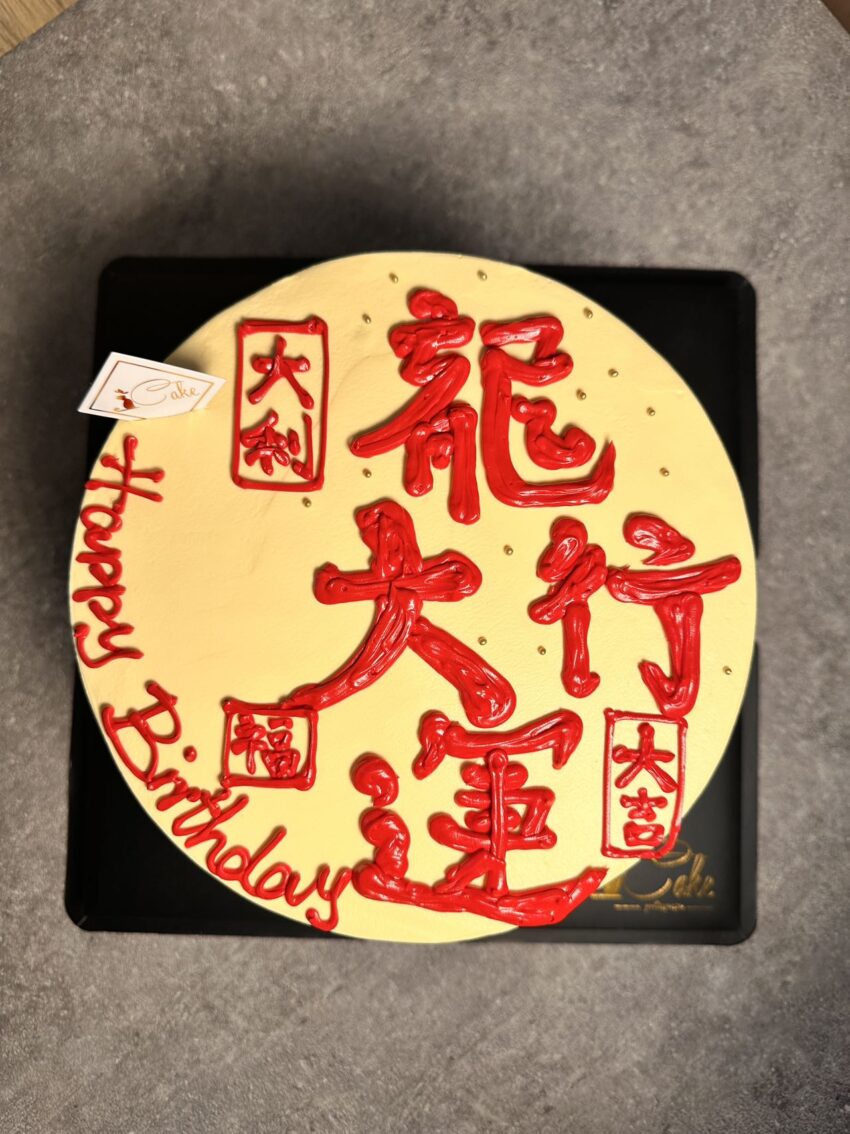 龍
行
大
運
大利
福
大吉
Happy Birthday
Cake
Cake